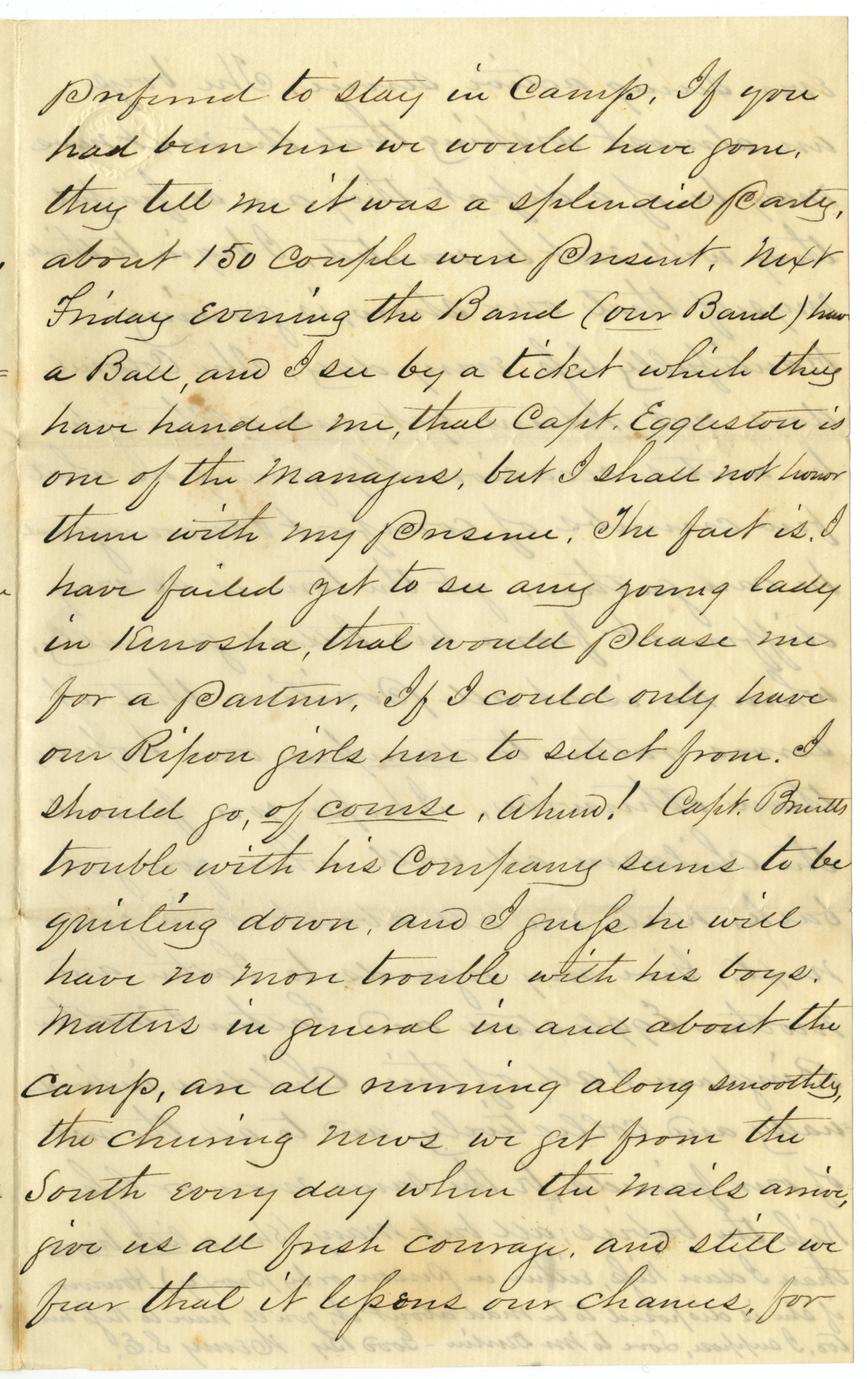 Preferred to stay in Camp. If you
had been here we would have gone.
they tell me it was a splendid Party,
about 150 Couple were Present. Next
Friday Evening the Band (our Band) have
a Ball, and I see by a ticket which they
have handed me, that Capt. Eggleston is
one of the Managers, but I shall not honor
them with my Presence. The fact is, I
have failed yet to see any young lady
in Kenosha, that would Please me
for a Partner. If I could only have
our Ripon girls here to select from. I
should go, of course. Ahem! Capt.
trouble with his Company seems to be
quieting down, and I guess he will
have no more trouble with his boys.
Matters in general in and about the
Camp, are all running along smoothly,
the cheering news we get from the
South every day when the Mails arrive,
give us all fresh courage, and still we
fear that it lessens our chances, for